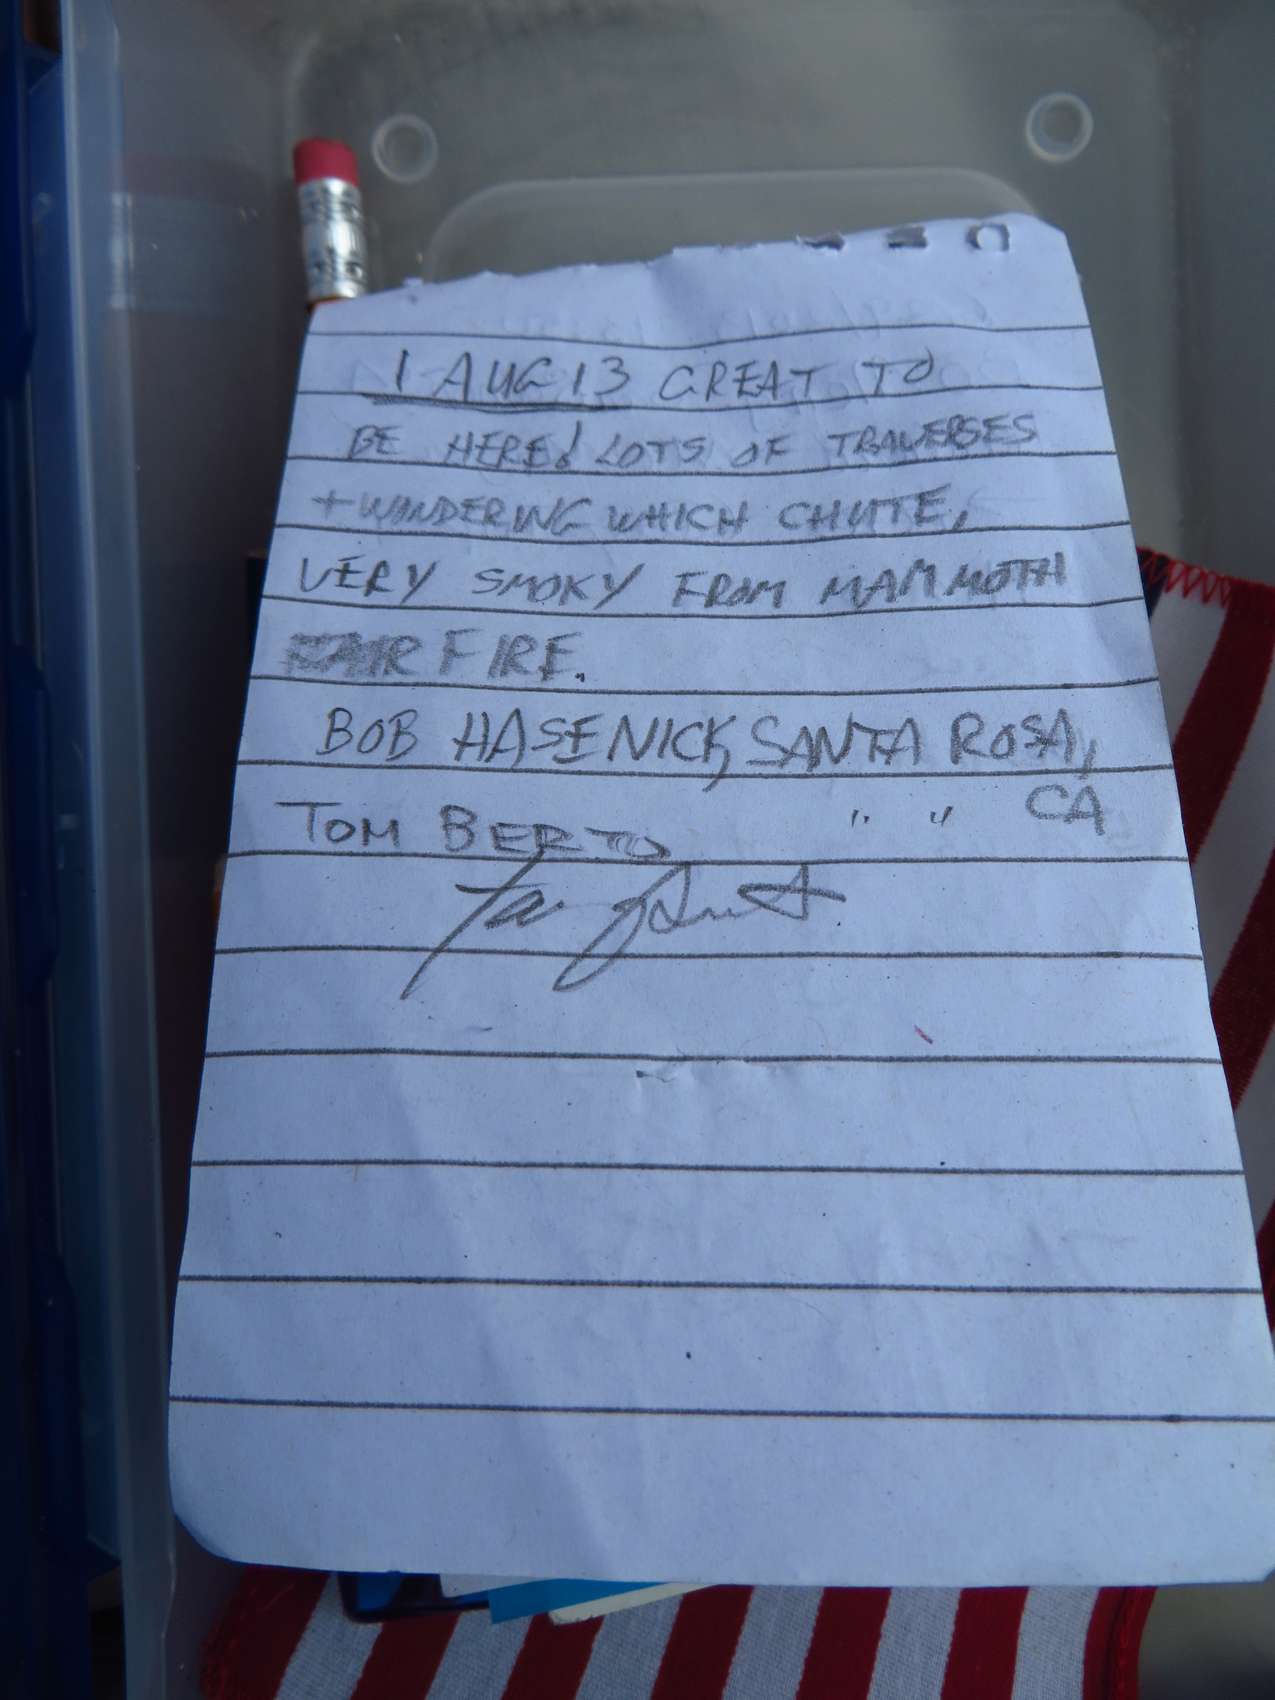 1 AUG 13 GREAT TO
BE HERE! LOTS OF TRAVERSES
+ WONDERING WHICH CHUTE,
VERY SMOKY FROM MAMMOTH
FIRE.
BOB HASENICK, SANTA ROSA,
CA
TOM BERTO " "